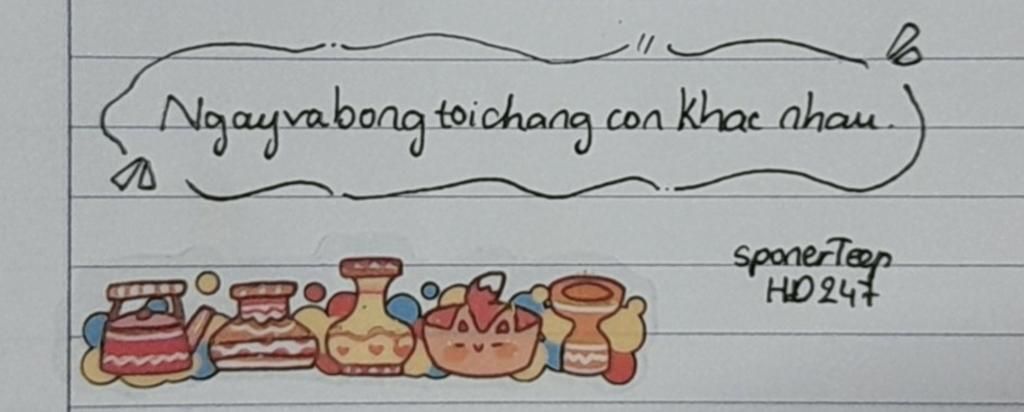 Ngayvabong toichang con khac nhau.
sponerTeep
HD247